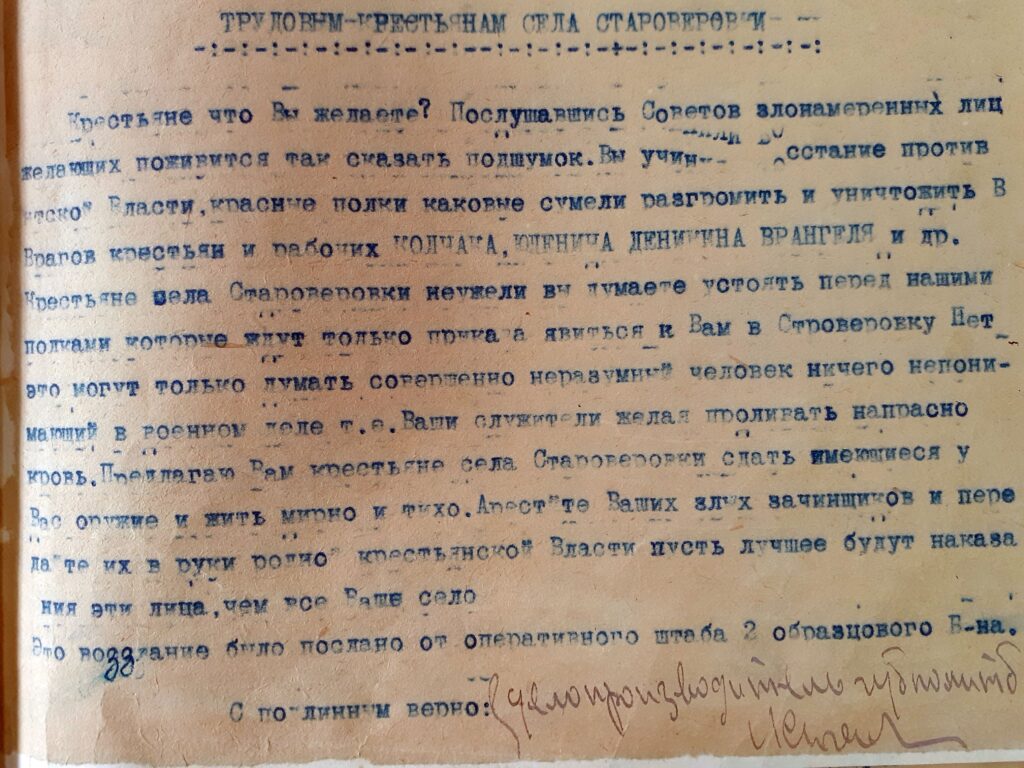 ТРУДОВЫМ-КРЕСТЬЯНАМ СЕЛА СТАРОВЕРОВКИ- --
-:-:-:-:-:-:-:-:-:-:-:-:-:-:-+-:-:-:-:-:-:
Крестьяне что Вы желаете? Послушавшись Советов злонамеренных лиц
желающих поживится так сказать подшумок.Вы учинили восстание против
тской Власти,красные полки каковые сумели разгромить и уничтожить В
Врагов крестьян и рабочих КОЛЧАКА,ЮДЕНИЧА ДЕНИКИНА ВРАНГЕЛЯ и др.
Крестьяне села Староверовки неужели вы думаете устоять перед нашими
полками которые ждут только приказа явиться к Вам в Строверовку Нет
это могут только думать совершенно неразумный человек ничего непони-
мающий в военном деле т.е.Ваши служители желая проливать напрасно
кровь.Предлагаю Вам крестьяне села Староверовки сдать имеющиеся у
Вас оружие и жить мирно и тихо.Арестуйте Ваших злых зачинщиков и пере
дайте их в руки родной крестьянской Власти пусть лучшее будут наказа
ния эти лица,чем все Ваше село
Это воззвание было послано от оперативного штаба 2 образцового Б-на.
С подлинным верно: Делопроизводитель губполит